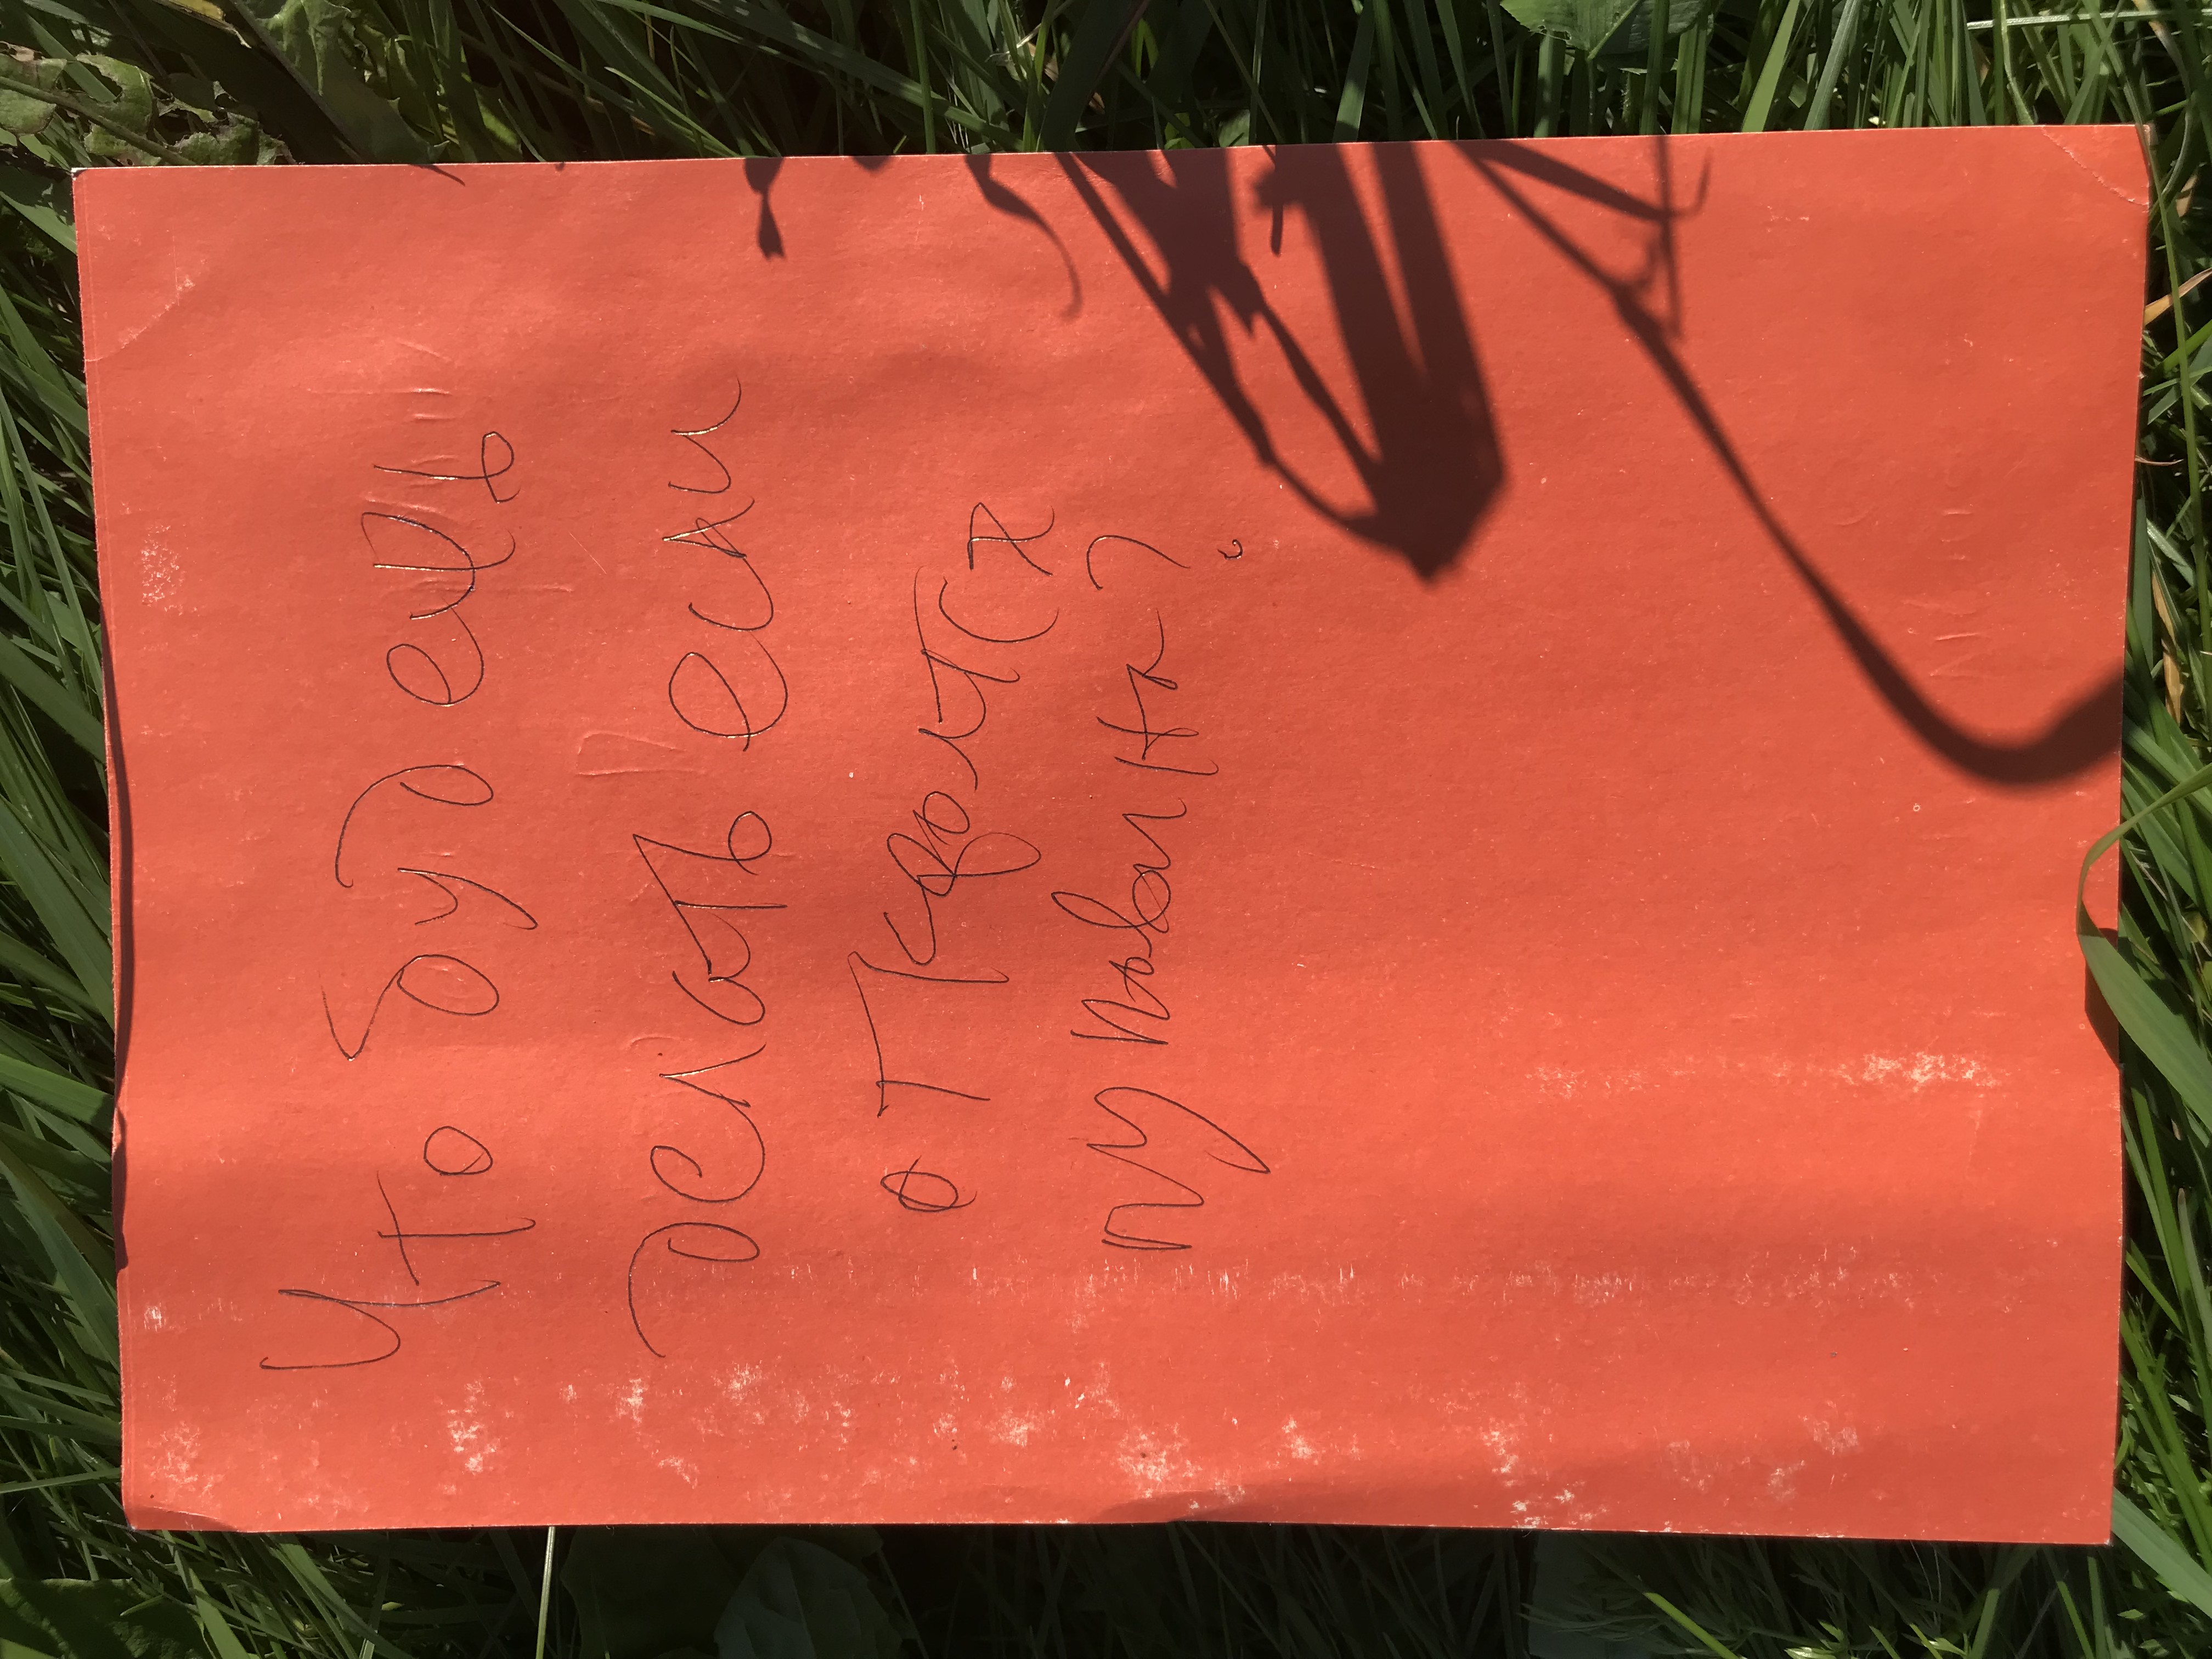 Что будешь
делать если
откроется
пуповина?